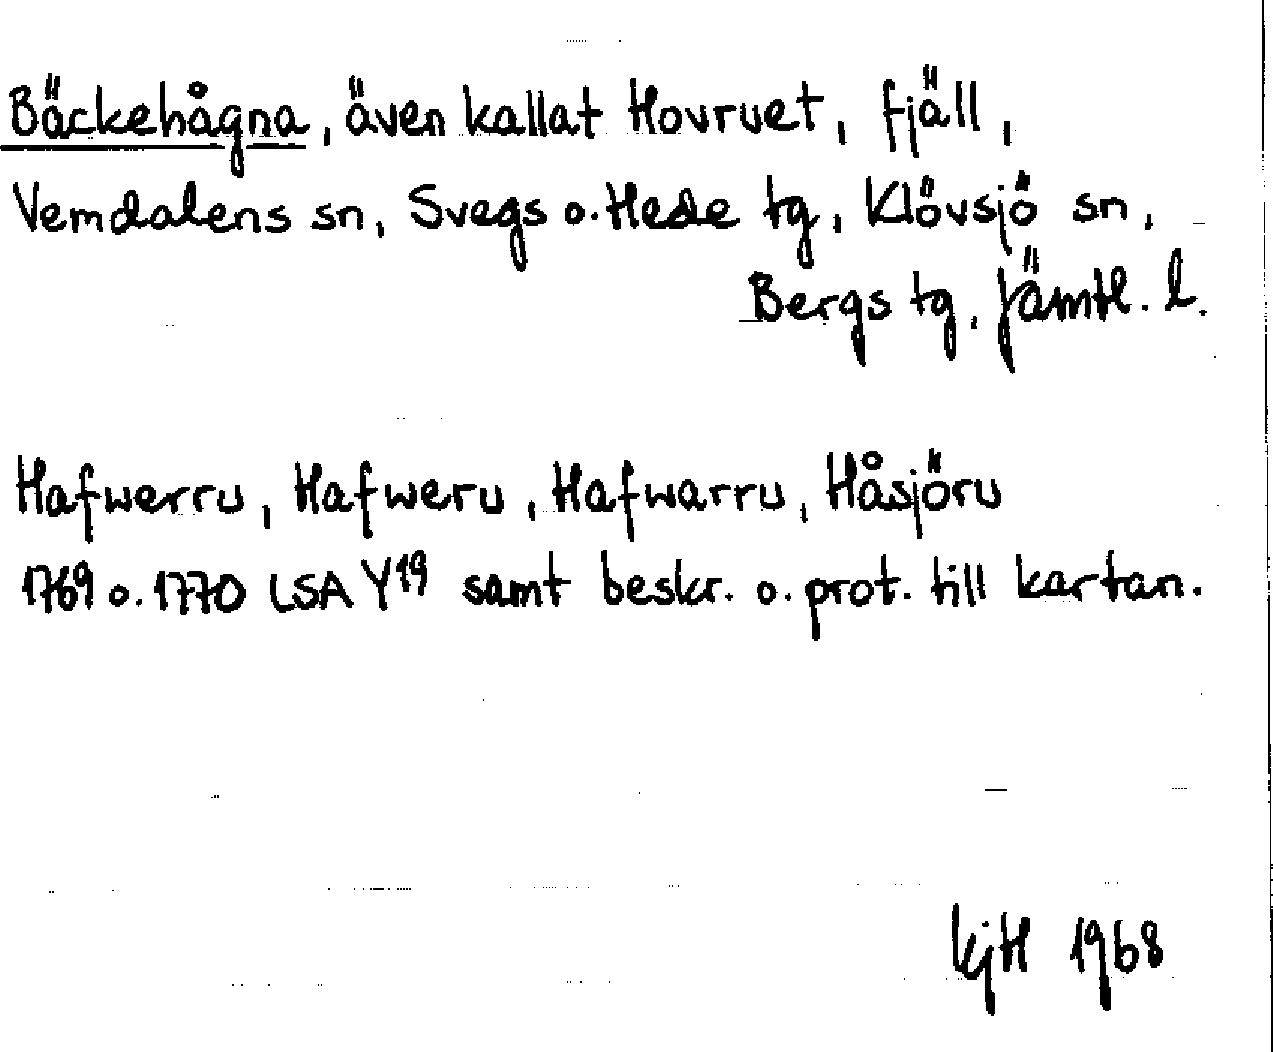 Bäckehågna, även kallat Hovruet, fjäll,
Vemdalens sn, Svegs o. Hede tg, Klövsjö sn,
Bergs tg, Jämtl. l.
Hafwerru, Hafweru, Hafwarru, Håsjöru
1769 o. 1770 LSA Y19 samt beskr. o. prot. till kartan.
KjH 1968